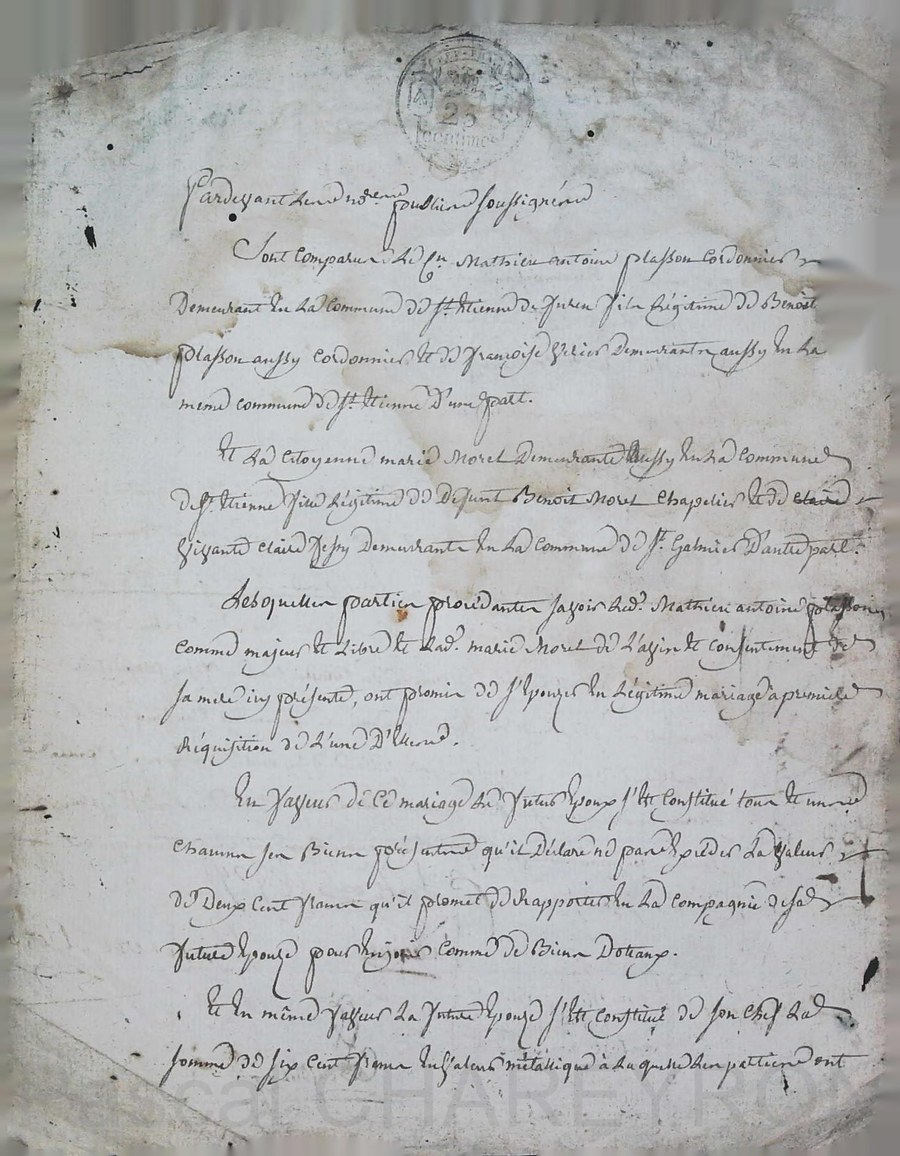 25
centimes
Pardevant Les Nores publics soussignés
Sont comparus Le Cn. Mathieu Antoine plasson Cordonnier
Demeurant En La Commune de St. Etienne de furen fils Légitime de Benoit
plasson aussy Cordonnier et de françoise Demeurants aussy En La
meme commune de St. Etienne D'une part.
Et La Citoyenne marie Morel Demeurante Aussy En La Commune
de St. Etienne fille Légitime de Defunt Benoit Morel Chapelier et de Claire
Vivante Claire Demeurante En La Commune de St. Galmier D'autre part.
Lesquelles parties procedantes savoir Led. Mathieu antoine plasson
Comme majeur et Libre et Lad. marie Morel de L'avis et Consentement de
sa mere icy présente, ont promis de s'Epouser En Légitime mariage a premiere
Réquisition de L'une D'Elles.
En faveur de Ce mariage Le futur Epoux s'Est Constitué tous et uns
Chacuns ses Biens présents qu'il Déclare ne pas Exceder La Valeur
de Deux Cent francs qu'il promet de Rapporter En La Compagnie de sa
future Epouse pour En jouir Comme de Biens Dotaux.
Et En même faveur La future Epouse s'Est Constitué de son Chef La
somme de six Cent francs En Valeur métallique à Laquelle Les parties ont
Pascal CHAREYRON